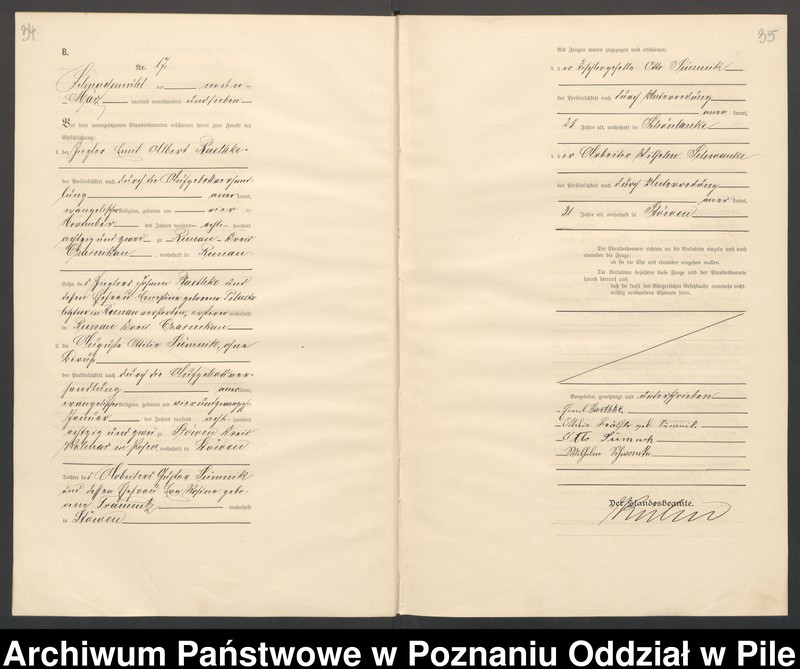 34
B.
Nr. 17.
Schneidemühl am neun ten
März tausend neunhundert und sieben
Vor dem unterzeichneten Standesbeamten erschienen heute zum Zwecke der
Eheschließung:
1. der Ziegler Emil Albert Raethke
der Persönlichkeit nach durch die Aufgebotsverhand
lung aner kannt,
evangelischer Religion, geboren am vier ten
November des Jahres tausend acht hundert
achtzig und zwei zu Runau Kreis
Czarnikau, wohnhaft in Runau
Sohn des Zieglers Johann Raethke und
dessen Ehefrau Ernestine geborene
letztere in Runau verstorben, ersterer wohnhaft
in Runau Kreis Czarnikau
2. die Auguste Ottilie Sümnik, ohne
Beruf
der Persönlichkeit nach durch die Aufgebotsver
handlung aner kannt,
evangelischer Religion, geboren am vierundzwanzigsten
Januar des Jahres tausend acht hundert
achtzig und zwei zu Stöwen Kreis
Kolmar in Posen, wohnhaft in Stöwen
Tochter des Arbeiters Gustav Sümnik
und dessen Ehefrau Eva Rosine gebo
rene wohnhaft
in Stöwen
35
Als Zeugen waren zugezogen und erschienen:
3. der Tischlergeselle Otto Sümnik
der Persönlichkeit nach durch Unterredung
aner kannt,
28 Jahre alt, wohnhaft in Schönlanke
4. der Arbeiter Wilhelm
der Persönlichkeit nach durch Unterredung
aner kannt,
31 Jahre alt, wohnhaft in Stöwen
Der Standesbeamte richtete an die Verlobten einzeln und nach
einander die Frage:
ob sie die Ehe mit einander eingehen wollen.
Die Verlobten bejahten diese Frage und der Standesbeamte
sprach hierauf aus,
daß sie kraft des Bürgerlichen Gesetzbuchs nunmehr recht-
mäßig verbundene Eheleute seien.
Vorgelesen, genehmigt und unterschrieben
Emil Raethke.
Ottilie Raethke geb. Sümnik.
Otto Sümnik
Wilhelm
Der Standesbeamte.
Archiwum Państwowe w Poznaniu Oddział w Pile